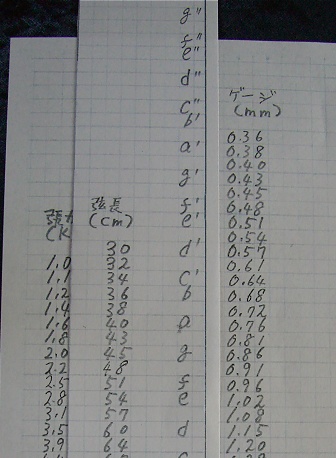 張
(K
1.0
1.1
1.2
1.4
1.6
1.8
2.0
2.2
2.5
2.8
3.1
3.5
3.9
弦長
(cm)
30
32
34
36
38
40
43
45
48
51
54
57
60
64
g"
f"
e"
d"
c"
b'
a'
g'
f'
e'
d'
c'
b
a
g
f
e
d
ゲージ
(mm)
0.36
0.38
0.40
0.43
0.45
0.48
0.51
0.54
0.57
0.61
0.64
0.68
0.72
0.76
0.81
0.86
0.91
0.96
1.02
1.08
1.15
1.20